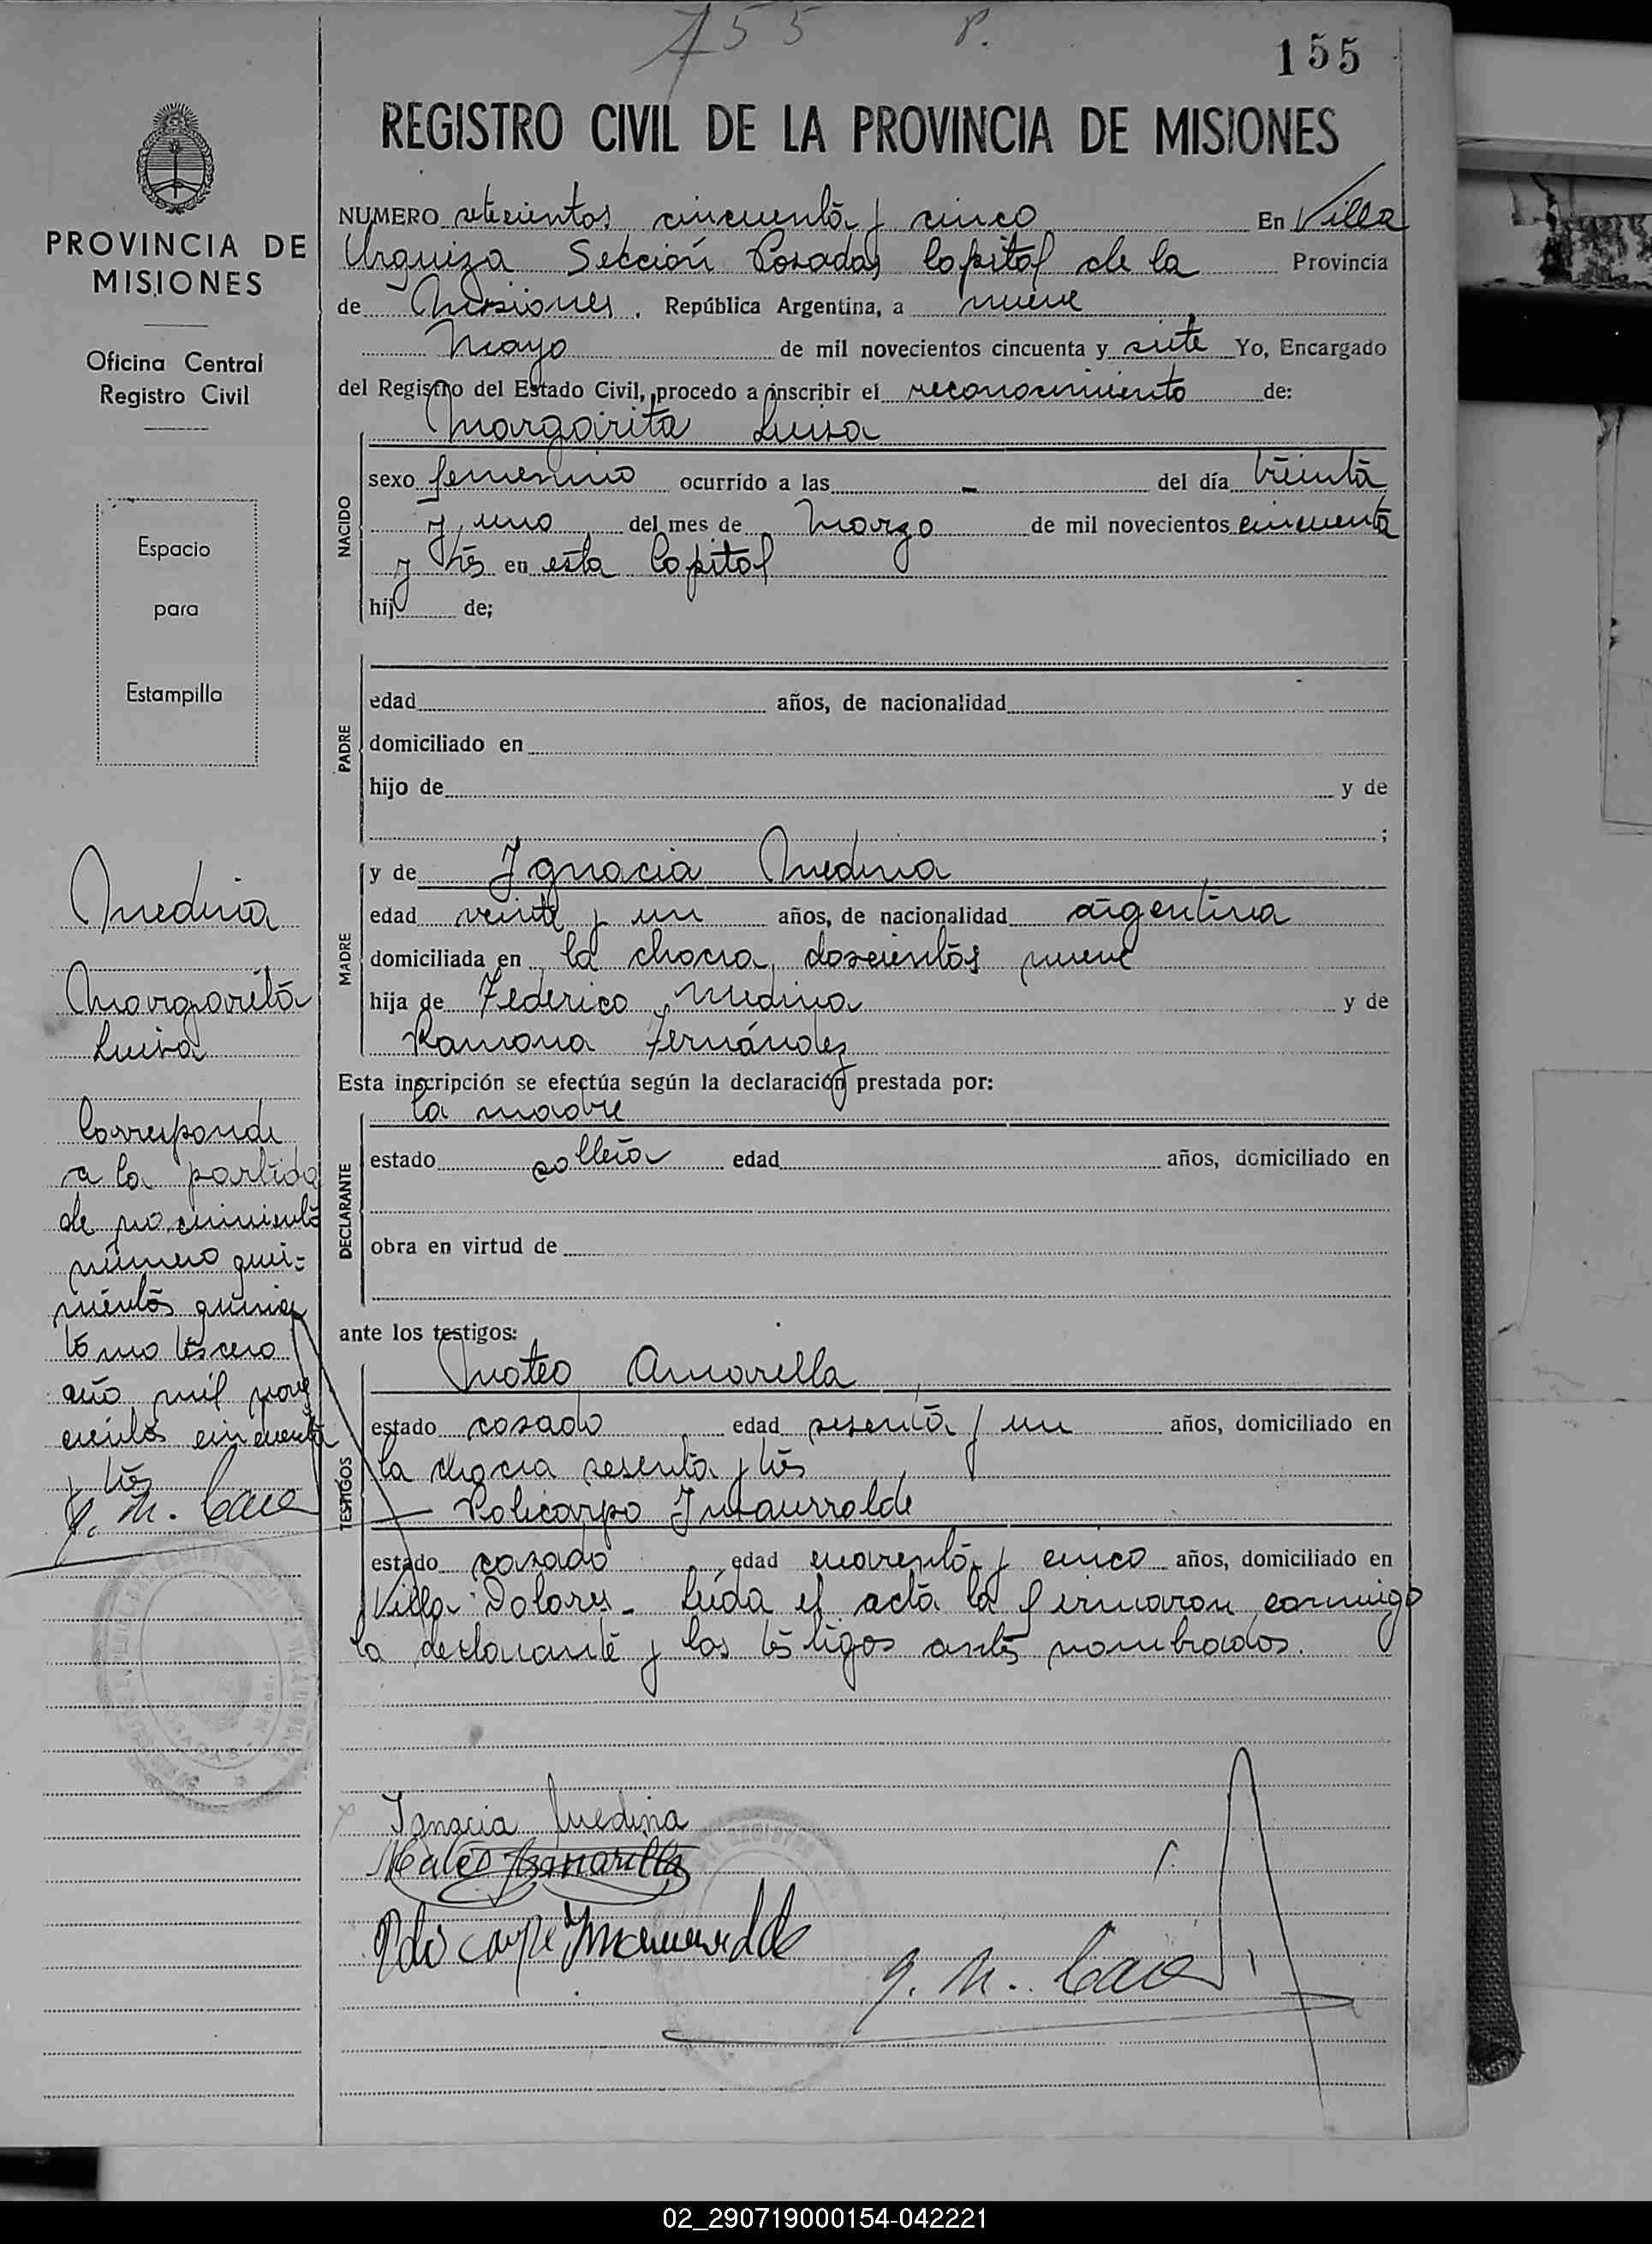 755 P.
155
REGISTRO CIVIL DE LA PROVINCIA DE MISIONES
PROVINCIA DE
MISIONES
Oficina Central
Registro Civil
Espacio
para
Estampilla
Medina
Margarita
Luisa
Corresponde
a la partida
de nacimiento
número qui-
nientos quince
tomo tercero
año mil nove
cientos cincuenta
y tres
NUMERO setecientos cincuenta y cinco En Villa
Urquiza Sección Posadas Capital de la Provincia
de Misiones. República Argentina, a nueve
Mayo de mil novecientos cincuenta y siete Yo, Encargado
del Registro del Estado Civil, procedo a inscribir el reconocimiento de:
Margarita Luisa
NACIDO
sexo femenino ocurrido a las - del día treinta
y uno del mes de Marzo de mil novecientos cincuenta
y tres en esta Capital
hij de;
PADRE
edad años, de nacionalidad
domiciliado en
hijo de y de
;
MADRE
y de Ignacia Medina
edad veinte y un años, de nacionalidad argentina
domiciliada en la chacra doscientos nueve
hija de Federico Medina y de
Ramona Fernández
Esta inscripción se efectúa según la declaración prestada por:
la madre
DECLARANTE
estado soltera edad años, domiciliado en
obra en virtud de
ante los testigos:
TESTIGOS
Mateo Amarilla
estado casado edad sesenta y un años, domiciliado en
la chacra sesenta y tres
Policarpo Insaurralde
estado casado edad cuarenta y cinco años, domiciliado en
Villa Dolores - Leída el acta la firmaron conmigo
la declarante y los testigos antes nombrados.
Ignacia Medina
Mateo Amarilla
02_290719000154-042221